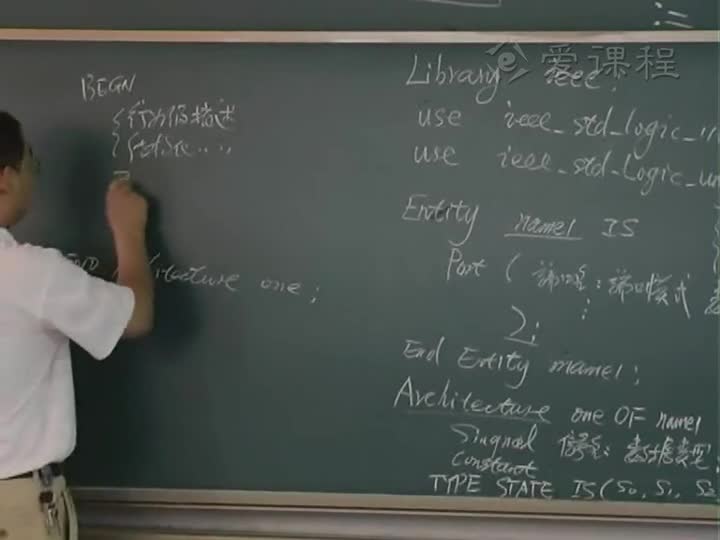 爱课程
BEGIN
行为仿描述
END Architecture one;
Library ieee;
use ieee_std_logic_11
use ieee_std_logic_un
Entity name1 IS
Port ( 端口名: 端口模式
⋮
);
End Entity name1;
Architecture one OF name1
Signal 信号名: 数据类型
Constant
TYPE STATE IS(S0, S1, S2